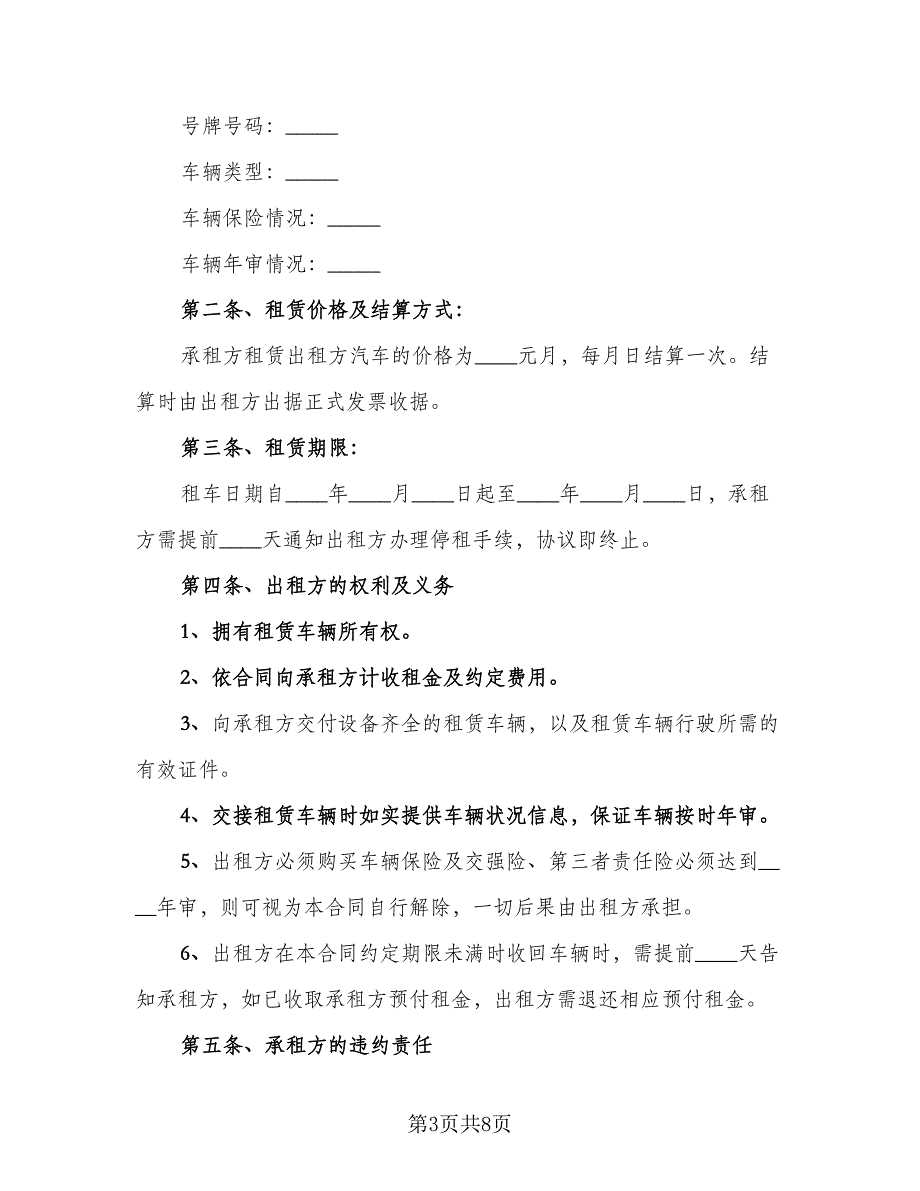 号牌号码：_____
车辆类型：_____
车辆保险情况：_____
车辆年审情况：_____
第二条、租赁价格及结算方式：
承租方租赁出租方汽车的价格为____元月，每月日结算一次。结
算时由出租方出据正式发票收据。
第三条、租赁期限：
租车日期自____年____月____日起至____年____月____日，承租
方需提前____天通知出租方办理停租手续，协议即终止。
第四条、出租方的权利及义务
1、拥有租赁车辆所有权。
2、依合同向承租方计收租金及约定费用。
3、向承租方交付设备齐全的租赁车辆，以及租赁车辆行驶所需的
有效证件。
4、交接租赁车辆时如实提供车辆状况信息，保证车辆按时年审。
5、出租方必须购买车辆保险及交强险、第三者责任险必须达到__
__年审，则可视为本合同自行解除，一切后果由出租方承担。
6、出租方在本合同约定期限未满时收回车辆时，需提前____天告
知承租方，如已收取承租方预付租金，出租方需退还相应预付租金。
第五条、承租方的违约责任
第3页共8页